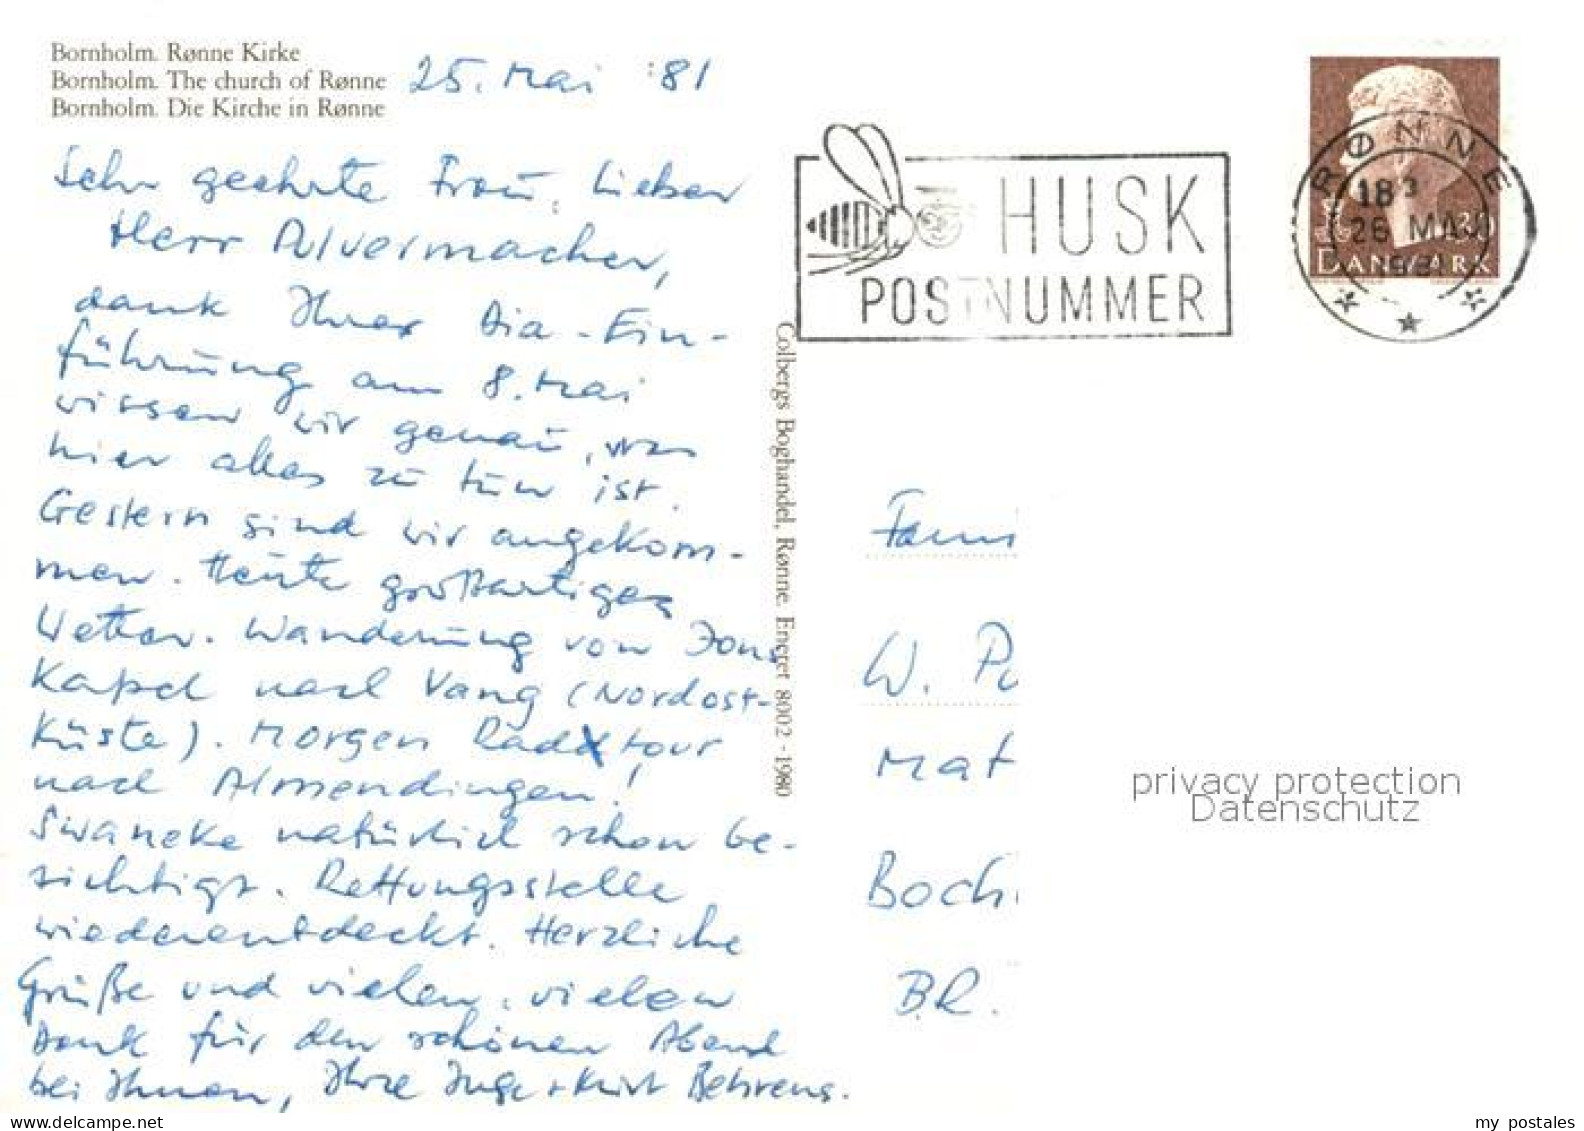 Bornholm. Rønne Kirke
Bornholm. The church of Rønne
Bornholm. Die Kirche in Rønne
25. Mai '81
Sehr geehrte Frau, Lieber
Herr Pulvermacher,
dank Ihrer Dia-Ein-
führung am 8. Mai
wissen wir genau, was
hier alles zu tun ist.
Gestern sind wir angekom-
men. Heute großartiges
Wetter. Wanderung von Jons
Kapel nach Vang (Nordost-
küste). Morgen Radtour
nach Almendingen!
Svaneke natürlich schon be-
sichtigt. Rettungsstelle
wiederentdeckt. Herzliche
Grüße und vielen, vielen
Dank für den schönen Abend
bei Ihnen, Ihre Inge + Kurt Behrens.
Colbergs Boghandel, Rønne. Eneret 8002 - 1980
HUSK
POSTNUMMER
RØNNE
18
26 MAJ
1981
130
DANMARK
Fami
W. Pu
Mat
Boch
B.R.
privacy protection
Datenschutz
my postales